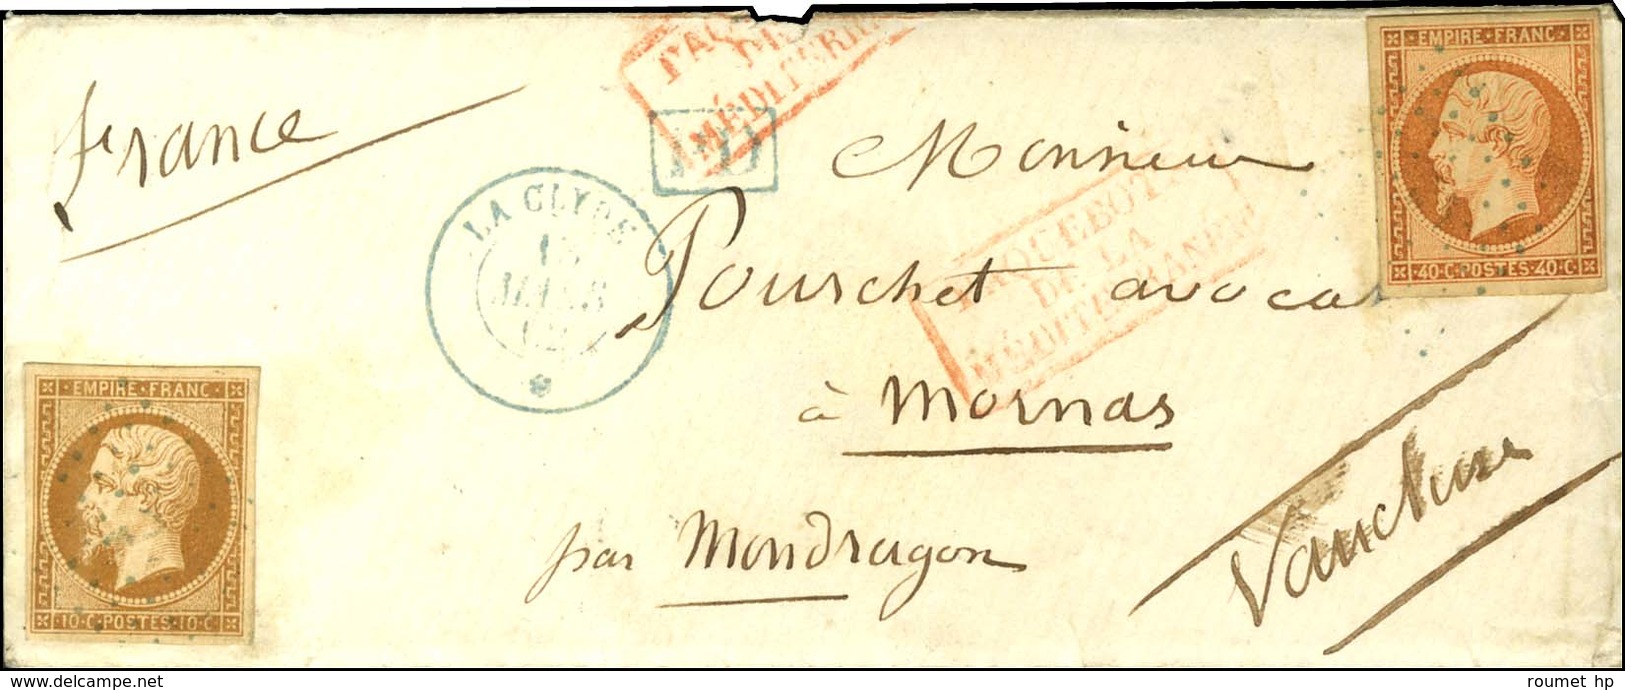 France
PAQ
DE
MÉDITERRA
EMPIRE·FRANC·
40·C·POSTES·40·C·
LA CLYDE
18
MARS
62
Monsieur
PAQUEBOTS
DE LA
MÉDITERRANÉE
Pourchet avocat
à Mornas
par Mondragon
Vaucluse
EMPIRE·FRANC·
10·C·POSTES·10·C
www.delcampe.net
roumet hp